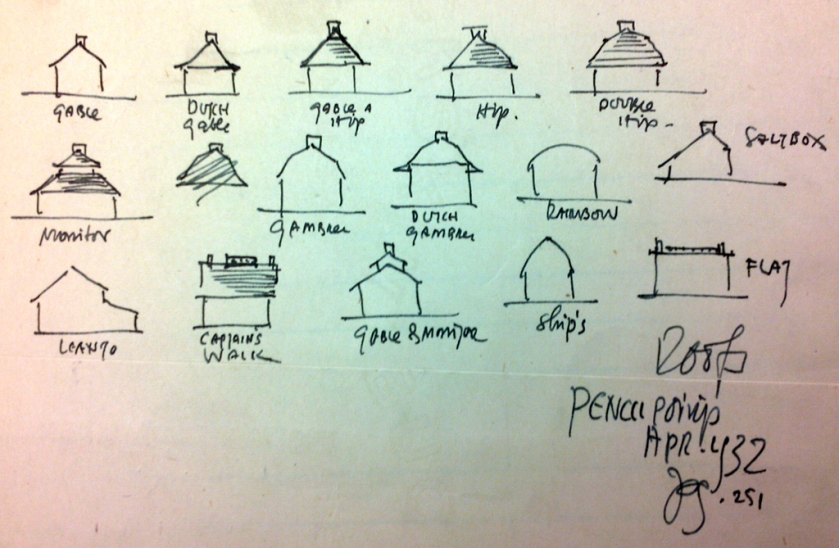 GABLE
DUTCH
gable
gable &
Hip
Hip.
DOUBLE
Hip -
SALTBOX
Monitor
GAMBREL
DUTCH
GAMBREL
RAINBOW
FLAT
LEANTO
CAPTAIN'S
WALK
GABLE & MONITOR
Ship's
Roofs
PENCIL POINTS
APR. 1932
Pg. 251